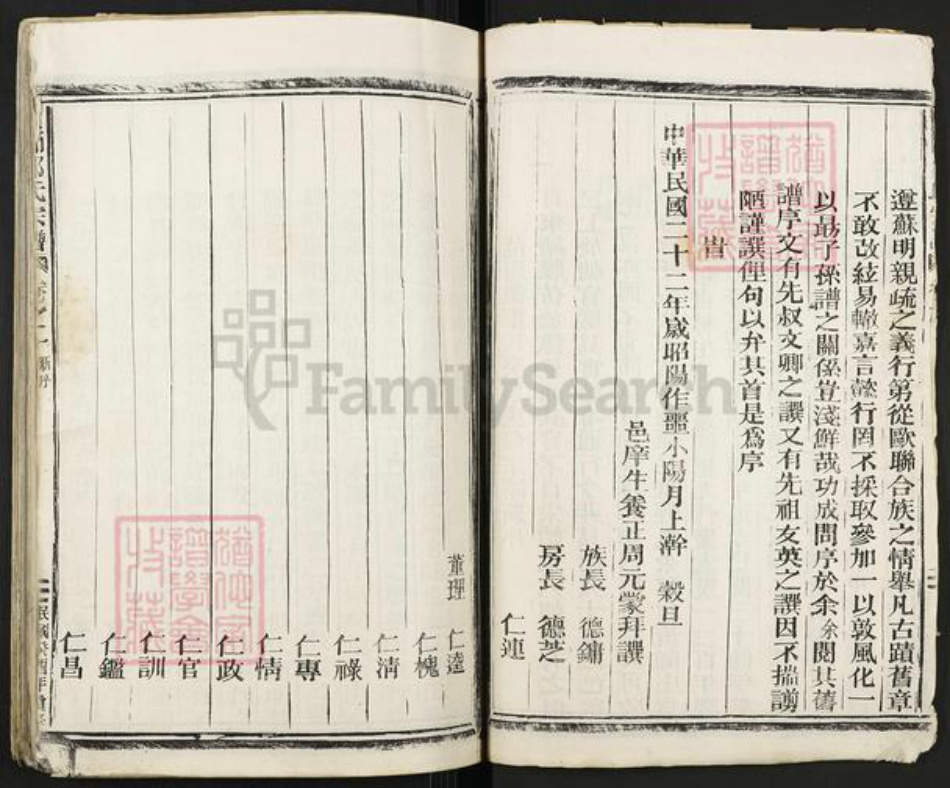 遵蘇明親疏之義行第從歐聯合族之情舉凡古蹟舊章
不敢改絃易轍嘉言懿行罔不採取參加一以敦風化一
以勗子孫譜之關係豈淺鮮哉功成問序於余余閱其舊
譜序文有先叔文卿之譔又有先祖友英之譔因不揣譾
陋謹譔俚句以弁其首是爲序
旹
中華民國二十二年嵗昭陽作噩小陽月上澣 榖旦
邑庠生養正周元蒙拜譔
族長 德鏞
房長 德芝
仁連
董理 仁逵
仁槐
仁淸
仁祿
仁專
仁情
仁政
仁官
仁訓
仁鑑
仁昌
氏宗譜 卷之一 新序
民國癸酉年
FamilySearch